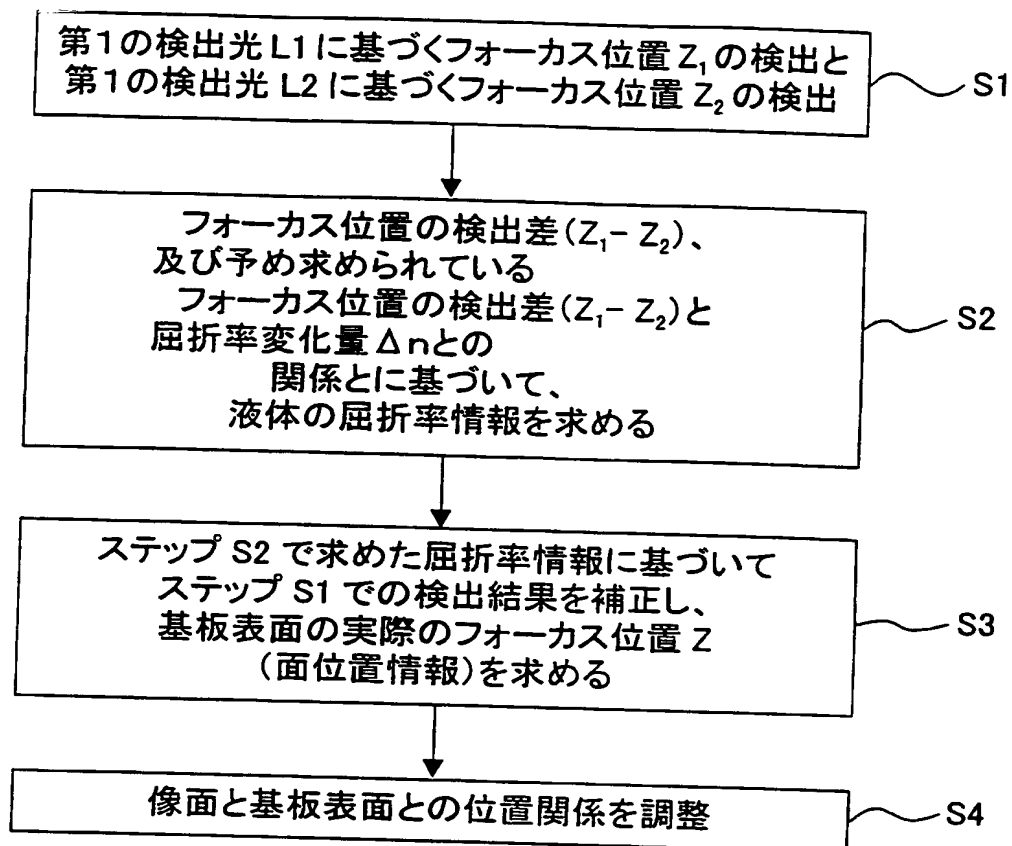 第1の検出光L1に基づくフォーカス位置Z₁の検出と
第1の検出光L2に基づくフォーカス位置Z₂の検出
S1
フォーカス位置の検出差(Z₁-Z₂)、
及び予め求められている
フォーカス位置の検出差(Z₁-Z₂)と
屈折率変化量Δnとの
関係とに基づいて、
液体の屈折率情報を求める
S2
ステップS2で求めた屈折率情報に基づいて
ステップS1での検出結果を補正し、
基板表面の実際のフォーカス位置Z
(面位置情報)を求める
S3
像面と基板表面との位置関係を調整
S4